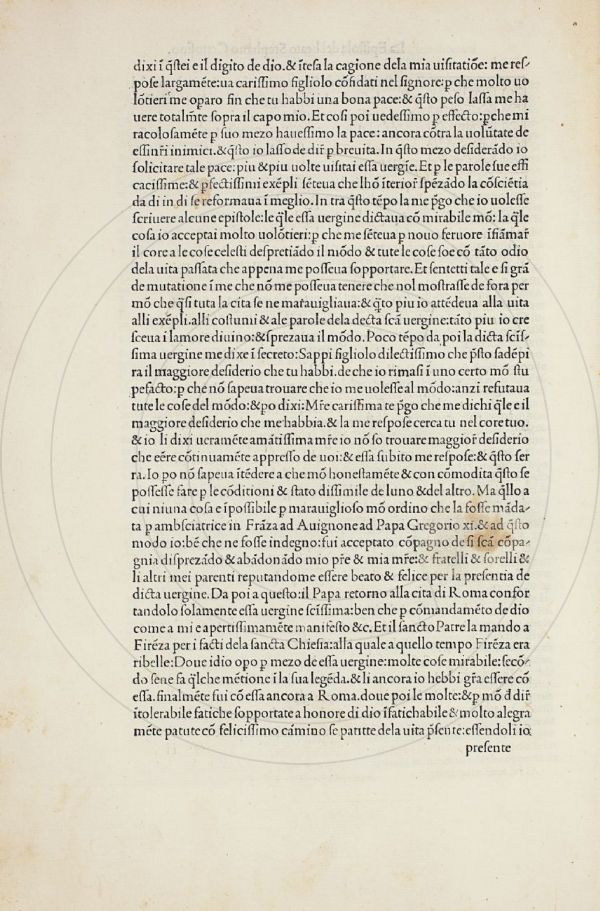 dixi ī q̄stei e il digito de dio.& ītesa la cagione dela mia uisitatiōe: me res⸗
pose largamēte:ua carissimo figliolo cōfidati nel signore:p che molto uo
lōtieri me oparo fin che tu habbi una bona pace:& q̄sto peso lassa me ha
uere totalmīte sopra il capo mio. Et cosi poi uedessimo p effecto:pche mi
racolosamēte p suo mezo hauessimo la pace: ancora cōtra la uolūtate de
essinr̄i inimici.& q̄sto io lasso de dir̄ p breuita. In q̄sto mezo desiderādo io
solicitare tale pace:piu & piu uolte uisitai essa uergīe. Et p le parole sue effi
cacissime:& pfectissimi exēpli sēteua che lhō īterior̄ spezādo la cōsciētia
da di in di se reformaua ī meglio. In tra q̄sto tēpo la me pgo che io uolesse
scriuere alcune epistole:le q̄le essa uergine dictaua cō mirabile mō: la q̄le
cosa io acceptai molto uolōtieri:p che me sēteua p nouo feruore īfiāmar̄
il core a le cose celesti despretiādo il mōdo & tute le cose soe cō tāto odio
dela uita passata che appena me posseua sopportare. Et sentetti tale e si grā
de mutatione ī me che nō me posseua tenere che nol mostrasse de fora per
mō che q̄si tuta la cita se ne marauigliaua:& q̄to piu io attēdeua alla uita
alli exēpli.alli costumi & ale parole dela decta scā uergine:tāto piu io cre
sceua ī lamore diuino:& sprezaua il mōdo. Poco tēpo da poi la dicta scīs⸗
sima uergine me dixe ī secreto: Sappi figliolo dilectissimo che p̄sto sadēpi
ra il maggiore desiderio che tu habbi.de che io rimasi ī uno certo mō stu
pefacto:p che nō sapeua trouare che io me uolesse al mōdo:anzi refutaua
tute le cose del mōdo:& po dixi: Mr̄e carissima te pgo che me dichi q̄le e il
maggiore desiderio che me habbia. & la me respose cerca tu nel core tuo.
& io li dixi ueramēte amātissima mr̄e io nō so trouare maggior̄ desiderio
che eēre cōtinuamēte appresso de uoi:& essa subito me respose:& q̄sto ser
ra. Io po nō sapeua ītēdere a che mō honestamēte & con cōmodita q̄sto se
possesse fare p le cōditioni & stato dissimile de luno & del altro. Ma q̄llo a
cui niuna cosa e īpossibile p marauiglioso mō ordino che la fosse māda⸗
ta p ambsciatrice in Frāza ad Auignone ad Papa Gregorio xi.& ad q̄sto
modo io:bē che ne fosse indegno:fui acceptato cōpagno de si scā cōpa⸗
gnia disprezādo & abādonādo mio pr̄e & mia mr̄e:& fratelli & sorelli &
li altri mei parenti reputandome essere beato & felice per la presentia de
dicta uergine. Da poi a questo:il Papa retorno alla cita di Roma confor
tandolo solamente essa uergine scīssima:ben che p comandamēto de dio
come a mi e apertissimamēte manifesto &c. Et il sancto Patre la mando a
Firēza per i facti dela sancta Chiesia:alla quale a quello tempo Firēza era
ribelle:Doue idio opo p mezo de essa uergine:molte cose mirabile:secō⸗
do sene fa q̄lche mētione ī la sua legēda.& li ancora io hebbi gr̄a essere cō
essa.finalmēte fui cō essa ancora a Roma.doue poi le molte:& p mō đ dir̄
ītolerabile fatiche sopportate a honore di dio īfatichabile & molto alegra
mēte patute cō felicissimo cámino se patitte dela uita p̄sente:essendoli io
presente